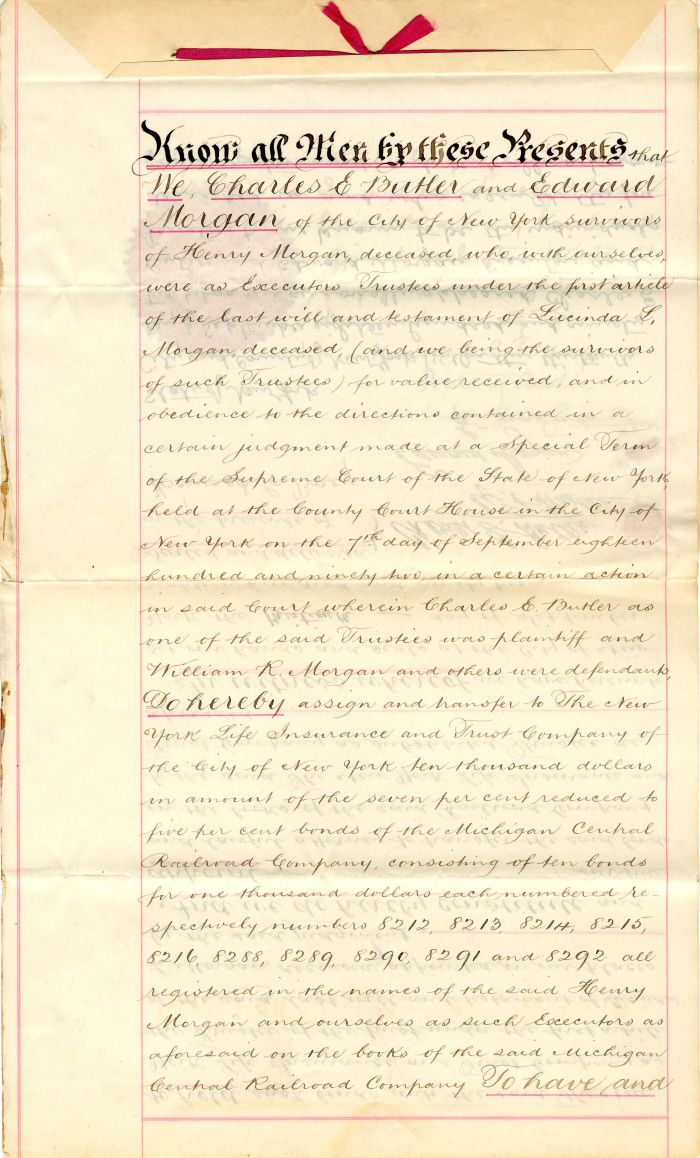 Know all Men by these Presents that
We, Charles E Butler and Edward
Morgan of the City of New York, survivors
of Henry Morgan, deceased, who, with ourselves,
were as Executors Trustees under the first article
of the last will and testament of Lucinda L.
Morgan, deceased, (and we being the survivors
of such Trustees) for value received, and in
obedience to the directions contained in a
certain judgment made at a Special Term
of the Supreme Court of the State of New York,
held at the County Court House in the City of
New York on the 7th day of September eighteen
hundred and ninety two, in a certain action
in said Court wherein Charles E. Butler as
one of the said Trustees was plaintiff and
William R. Morgan and others were defendants,
Do hereby assign and transfer to The New
York Life Insurance and Trust Company of
the City of New York ten thousand dollars
in amount of the seven per cent reduced to
five per cent bonds of the Michigan Central
Railroad Company, consisting of ten bonds
for one thousand dollars each numbered re-
spectively numbers 8212, 8213, 8214, 8215,
8216, 8288, 8289, 8290, 8291 and 8292 all
registered in the names of the said Henry
Morgan and ourselves as such Executors as
aforesaid on the books of the said Michigan
Central Railroad Company To have and